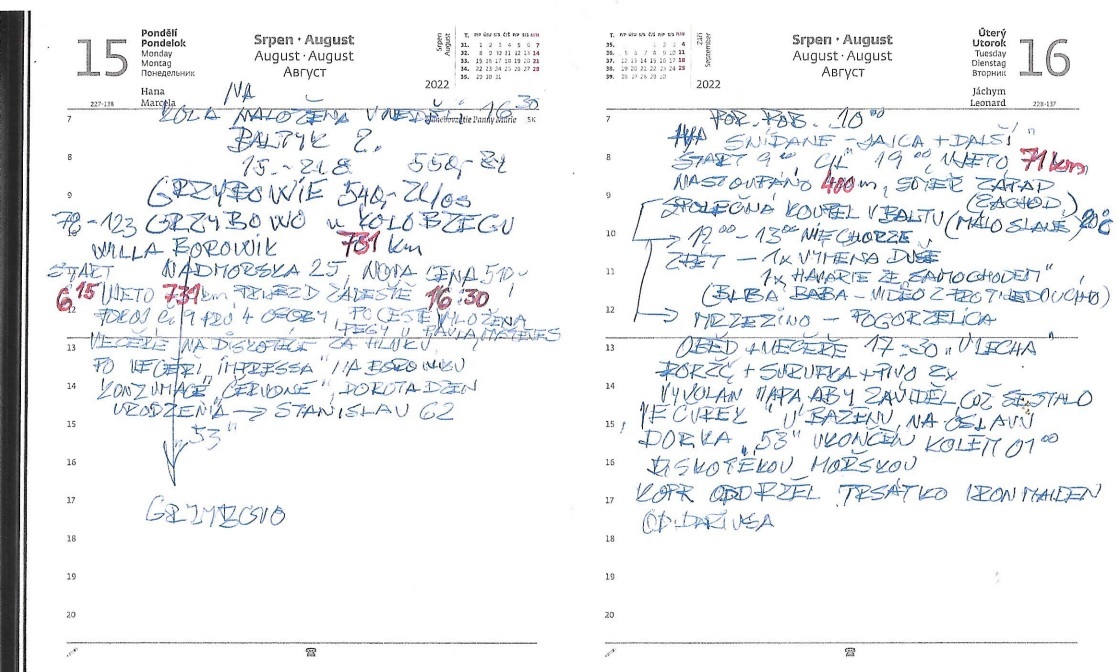 15
Pondělí
Pondelok
Monday
Montag
Понедельник
Hana
Marcela
227-138
Srpen · August
August · August
Август
2022
Srpen
August
T. P/P Ú/U S/S Č/Š P/P S/S N/N
31. 1 2 3 4 5 6 7
32. 8 9 10 11 12 13 14
33. 15 16 17 18 19 20 21
34. 22 23 24 25 26 27 28
35. 29 30 31
Nanebovzatie Panny Márie SK
NA
KOLA NALOŽENA V NEDĚLI 16 30
BALTYK 2.
15. - 21.8 550,- ZŁ
GRZYBOWIE 540,- ZŁ/os
78-123 GRZYBOWO u KOLOBZEGU
WILLA BOROWIK 731 km
START NADMORSKA 25, NOVÁ CENA 510,-
6 15 UJETO 731 km PŘÍJEZD ZA DEŠTĚ 16:30
POKOJ č. 9 PRO 4 OSOBY, PO CESTĚ VYLOŽENA
PEGY U PAVLA,
VEČEŘE NA DISKOTÉCE ZA HLUKU
PO VEČEŘI "IMPRESSA" NA BOROWIKU
KONZUMACE "ČERVONE", DOROTA DZEN
URODZENIA → STANISLAV 62
"53"
GRZYBOWO
7
8
9
10
11
12
13
14
15
16
17
18
19
20
T. P/P Ú/U S/S Č/Š P/P S/S N/N
35. 1 2 3 4
36. 5 6 7 8 9 10 11
37. 12 13 14 15 16 17 18
38. 19 20 21 22 23 24 25
39. 26 27 28 29 30
Září
September
2022
Srpen · August
August · August
Август
Úterý
Utorok
Tuesday
Dienstag
Вторник
16
Jáchym
Leonard
228-137
POR. RAB. 10 00
SNÍDANĚ - JAJCA + DALŠÍ
START 9 00 CÍL 19 00 UJETO 71 km
NASTOUPÁNO 400 m, SMĚR ZÁPAD
(ZACHOD)
SPOLEČNÁ KOUPEL V BALTU (MÁLO SLANÉ) 20°C
→ 12 00 - 13 00 NIECHORZE
ZPĚT - 1x VÝMĚNA DUŠE
1x HAVÁRIE ZE "SAMOCHODEM"
(BLBÁ BÁBA - VIDĚO Z PROTIJEDOUCÍHO)
→ MRZEŻINO - POGORZELICA
OBĚD + VEČEŘE 17:30 "U LECHA"
PORZČ + SURUFKA + PIVO 2x
VYVOLÁN PAPA ABY ZÁVIDĚL, COŽ SE STALO
VEČÍREK "U BAZÉNU" NA OSLAVU
DORKA "53" UKONČEN KOLEM 01 00
DISKOTÉKOU MOŘSKOU
KOPR OBDRŽEL TRSÁTKO IRON MAIDEN
OD DARIUSA
7
8
9
10
11
12
13
14
15
16
17
18
19
20